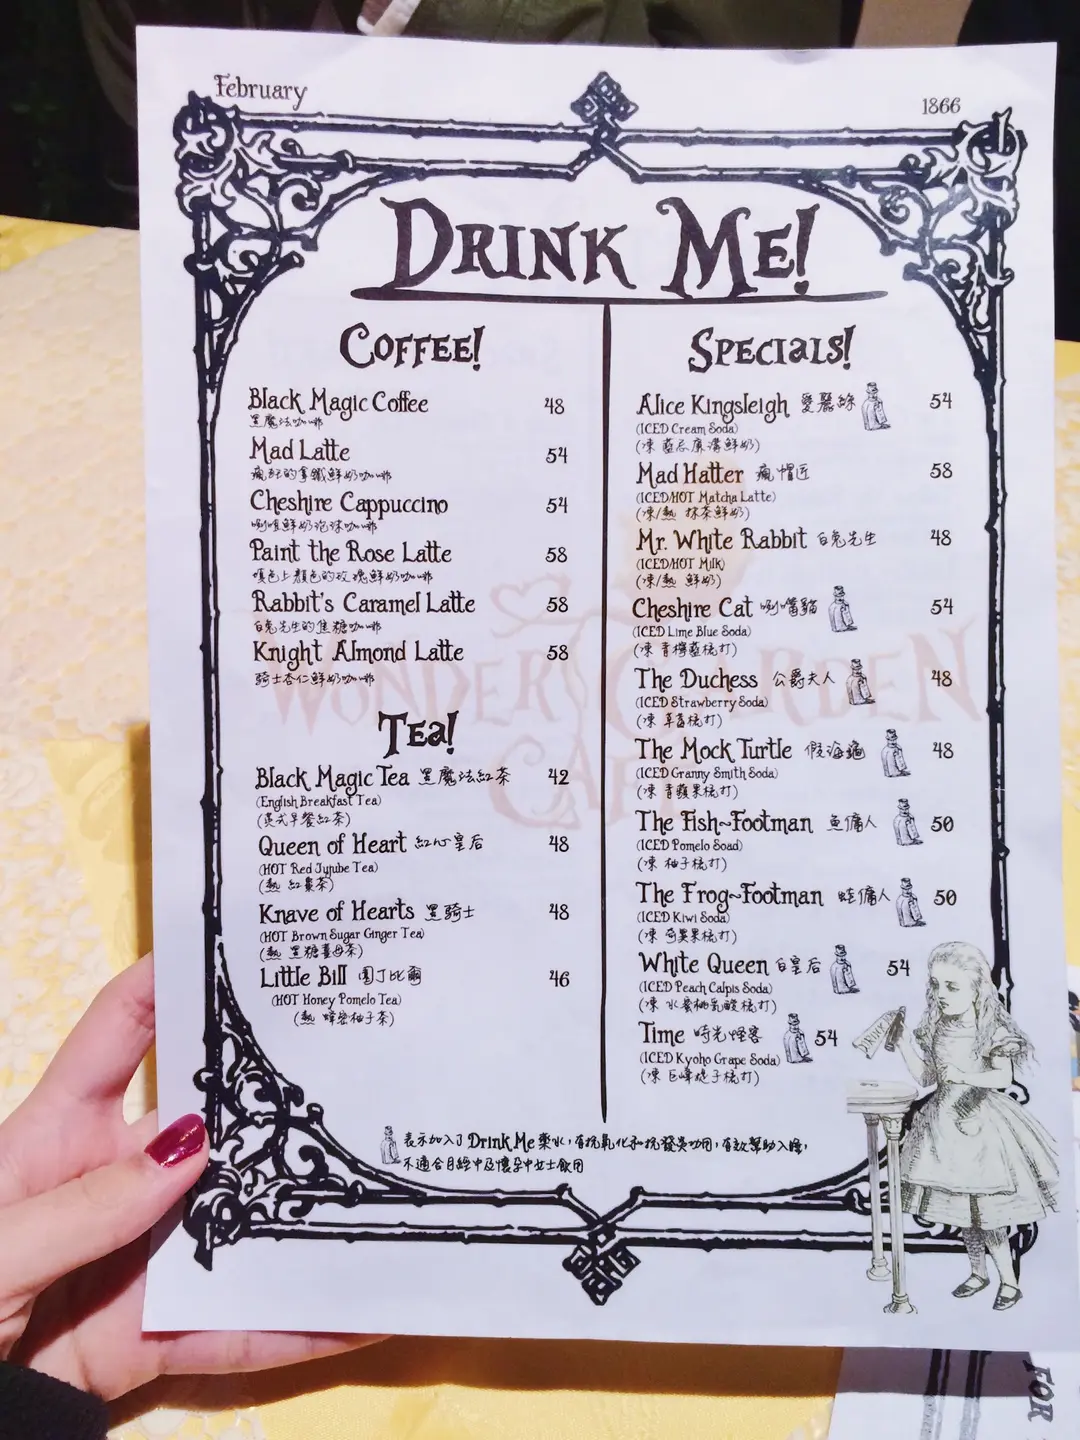 February
1866
DRINK ME!
COFFEE!
Black Magic Coffee 48
黑魔法咖啡
Mad Latte 54
瘋狂的拿鐵鮮奶咖啡
Cheshire Cappuccino 54
咧咀鮮奶泡沫咖啡
Paint the Rose Latte 58
填色上顏色的玫瑰鮮奶咖啡
Rabbit's Caramel Latte 58
白兔先生的焦糖咖啡
Knight Almond Latte 58
騎士杏仁鮮奶咖啡
TEA!
Black Magic Tea 黑魔法紅茶 42
(English Breakfast Tea)
(英式早餐紅茶)
Queen of Heart 紅心皇后 48
(HOT Red Jujube Tea)
(熱 紅棗茶)
Knave of Hearts 黑騎士 48
(HOT Brown Sugar Ginger Tea)
(熱 黑糖薑母茶)
Little Bill 園丁比爾 46
(HOT Honey Pomelo Tea)
(熱 蜂蜜柚子茶)
SPECIALS!
Alice Kingsleigh 愛麗絲 54
(ICED Cream Soda)
(凍 藍忌廉溝鮮奶)
Mad Hatter 瘋帽匠 58
(ICED/HOT Matcha Latte)
(凍/熱 抹茶鮮奶)
Mr. White Rabbit 白兔先生 48
(ICED/HOT Milk)
(凍/熱 鮮奶)
Cheshire Cat 咧嘴貓 54
(ICED Lime Blue Soda)
(凍 青檸藍梳打)
The Duchess 公爵夫人 48
(ICED Strawberry Soda)
(凍 草莓梳打)
The Mock Turtle 假海龜 48
(ICED Granny Smith Soda)
(凍 青蘋果梳打)
The Fish~Footman 魚傭人 50
(ICED Pomelo Soad)
(凍 柚子梳打)
The Frog~Footman 蛙傭人 50
(ICED Kiwi Soda)
(凍 奇異果梳打)
White Queen 白皇后 54
(ICED Peach Calpis Soda)
(凍 水蜜桃乳酸梳打)
Time 時光怪客 54
(ICED Kyoho Grape Soda)
(凍 巨峰提子梳打)
表示加入了Drink Me藥水,有抗氧化和抗發炎功用,有效幫助入睡,
不適合月經中及懷孕中女士飲用
DRINK
WONDER GARDEN
CAFE
FOR